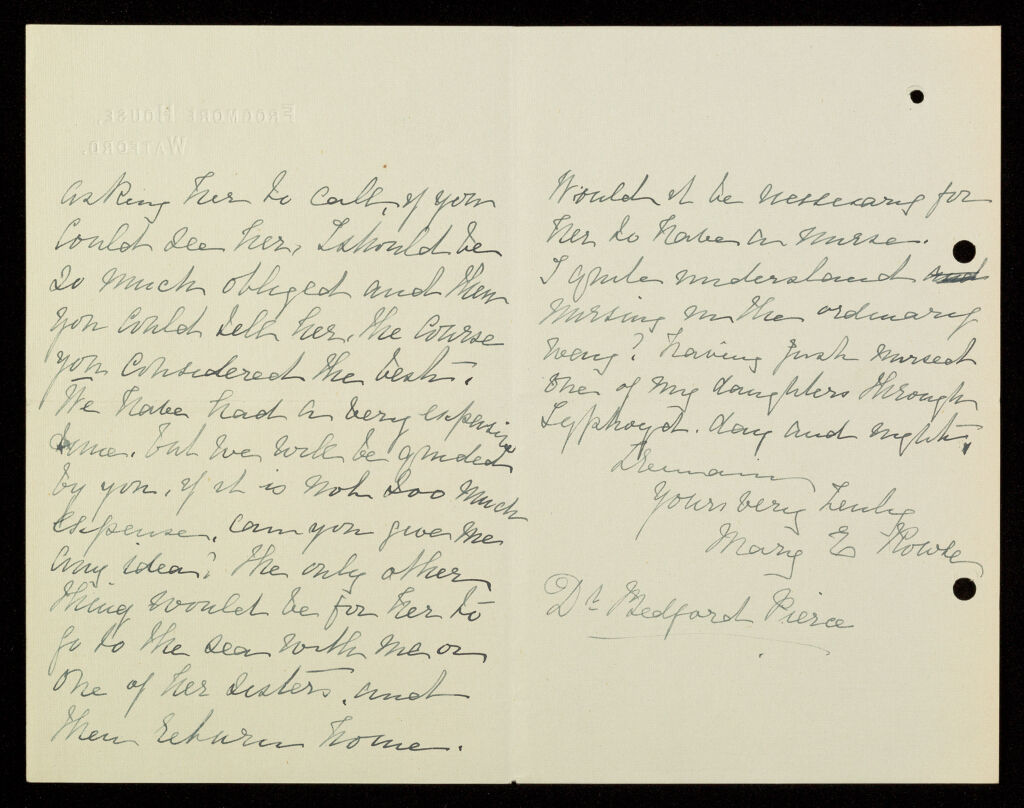 FROGMORE HOUSE,
WATFORD.
asking her to call, if you
could see her, I should be
so much obliged and then
you could tell her, the course
you considered the best.
We have had a very expensive
time. but we will be guided
by you, if it is not too much
expense, can you give me
any idea? The only other
thing would be for her to
go to the sea with me or
one of her sisters, and
then return home.
Would it be nessesary for
her to have a nurse.
I quite understand and
nursing in the ordinary
way? having just nursed
one of my daughters through
Typhoyd. day and night,
I remain
yours very truly
Mary E Rowse
Dr Bedford Pierce